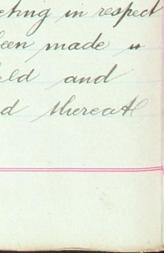 eting in respect
een made is
eld and
d thereat